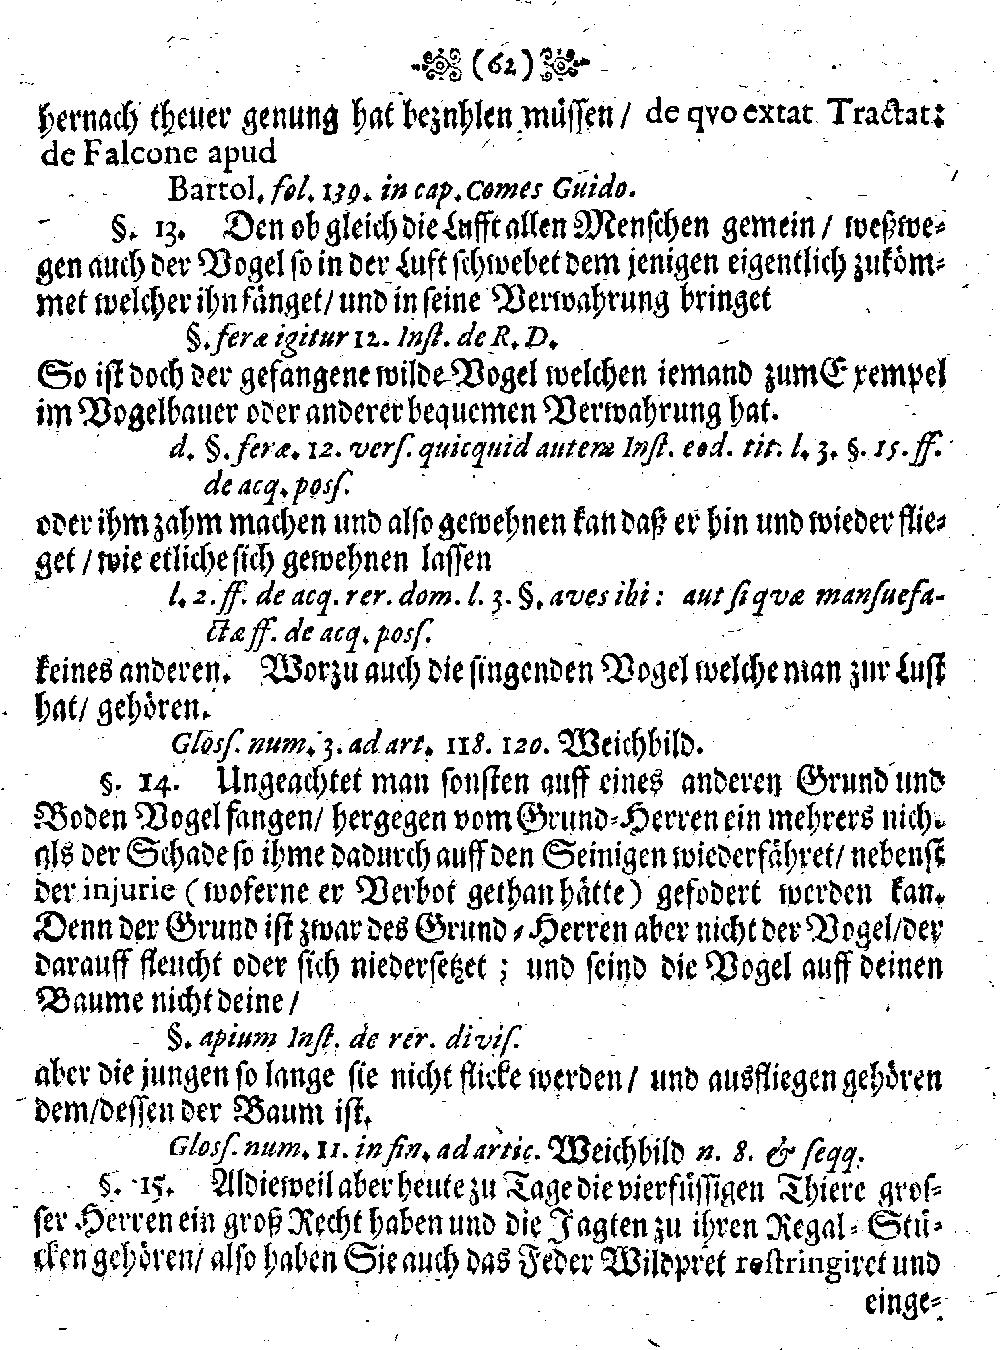 (62)
hernach theuer genung hat beznhlen müssen / de qvo extat Tractat:
de Falcone apud
Bartol. fol. 139. in cap. Comes Guido.
§. 13. Den ob gleich die Lufft allen Menschen gemein / weßwe-
gen auch der Vogel so in der Luft schwebet dem jenigen eigentlich zuköm-
met welcher ihn fänget / und in seine Verwahrung bringet
§. feræ igitur 12. Inst. de R. D.
So ist doch der gefangene wilde Vogel welchen iemand zum Exempel
im Vogelbauer oder anderer bequemen Verwahrung hat.
d. §. feræ. 12. vers. quicquid autem Inst. eod. tit. l. 3. §. 15. ff.
de acq. poss.
oder ihm zahm machen und also gewehnen kan daß er hin und wieder flie-
get / wie etliche sich gewehnen lassen
l. 2. ff. de acq. rer. dom. l. 3. §. aves ibi: aut si qvæ mansuefa-
ctæ ff. de acq. poss.
keines anderen. Worzu auch die singenden Vogel welche man zur Lust
hat / gehören.
Gloss. num. 3. ad art. 118. 120. Weichbild.
§. 14. Ungeachtet man sonsten auff eines anderen Grund und
Boden Vogel fangen / hergegen vom Grund-Herren ein mehrers nich.
als der Schade so ihme dadurch auff den Seinigen wiederfähret / nebenst
der injurie (woferne er Verbot gethan hätte) gefodert werden kan.
Denn der Grund ist zwar des Grund-Herren aber nicht der Vogel / der
darauff fleucht oder sich niedersetzet; und seind die Vogel auff deinen
Baume nicht deine /
§. apium Inst. de rer. divis.
aber die jungen so lange sie nicht flicke werden / und ausfliegen gehören
dem / dessen der Baum ist.
Gloss. num. 11. in fin. ad artic. Weichbild n. 8. & seqq.
§. 15. Aldieweil aber heute zu Tage die vierfüssigen Thiere gros-
ser Herren ein groß Recht haben und die Jagten zu ihren Regal-Stü-
cken gehören / also haben Sie auch das Feder Wildpret restringiret und
einge-